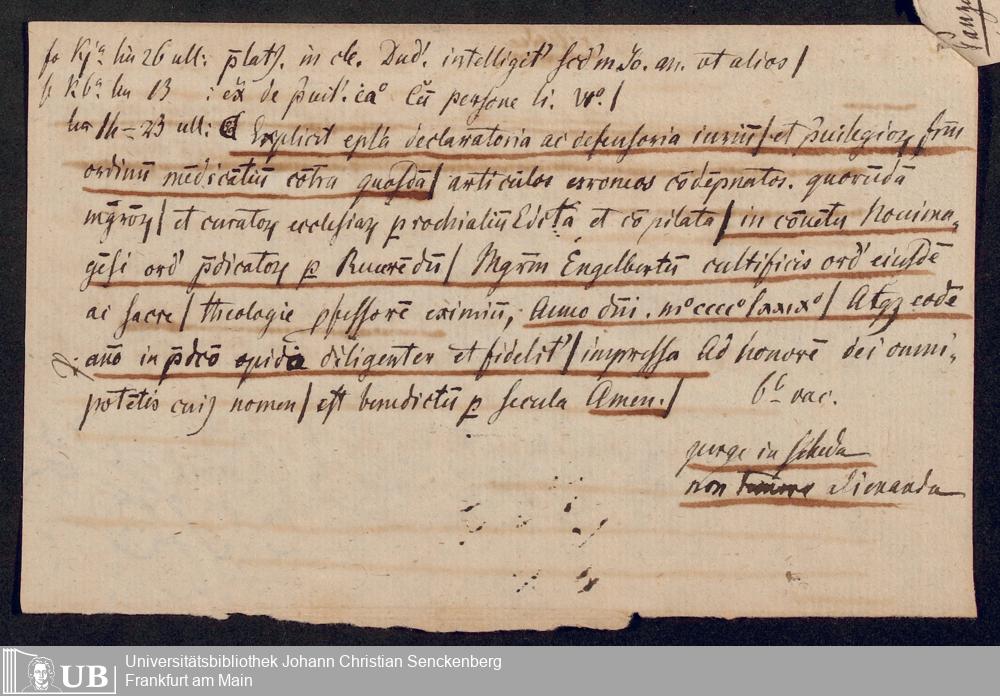 fo Kjª lin 26 ult: p̄latꝭ. in cle. Dud'. intelligit' scd'm Jo. an. ut alios /
f K6ª lin 13 : ex̄ de p̄uil. ca° Cū persone li. V°. /
lin 14 – 23 ult: Explicit epl'a declam̄atoria ac defensoria iuriū / et p̄uilegioꝝ frm̄
ordinū mēdicātiū cōtra quosdā / articulos erroneos cōdēpnatos. quorūdā
mg̅roꝝ / et curatoꝝ ecclesiaꝝ prochialiū Edcta et cōpilata / in cōuētu Nouima-
gēsi ord' p̄dicatoꝝ p Reuerēdū / Mgrm̄ Engelbertū cultificis ord' eiusdē
ac sacre / theologie pfessorē eximiū, Anno dn̄i. m° cccc° lxxix° / Atqꝫ eodē
an̄o in p̄dcō opido diligenter et fidelit' / impressa Ad honorē dei omni-
potētis cuiꝯ nomen / est benedictū p secula Amen. / 6ᵇ vac.
perge in scheda
non alienanda
Panze
UB Universitätsbibliothek Johann Christian Senckenberg
Frankfurt am Main